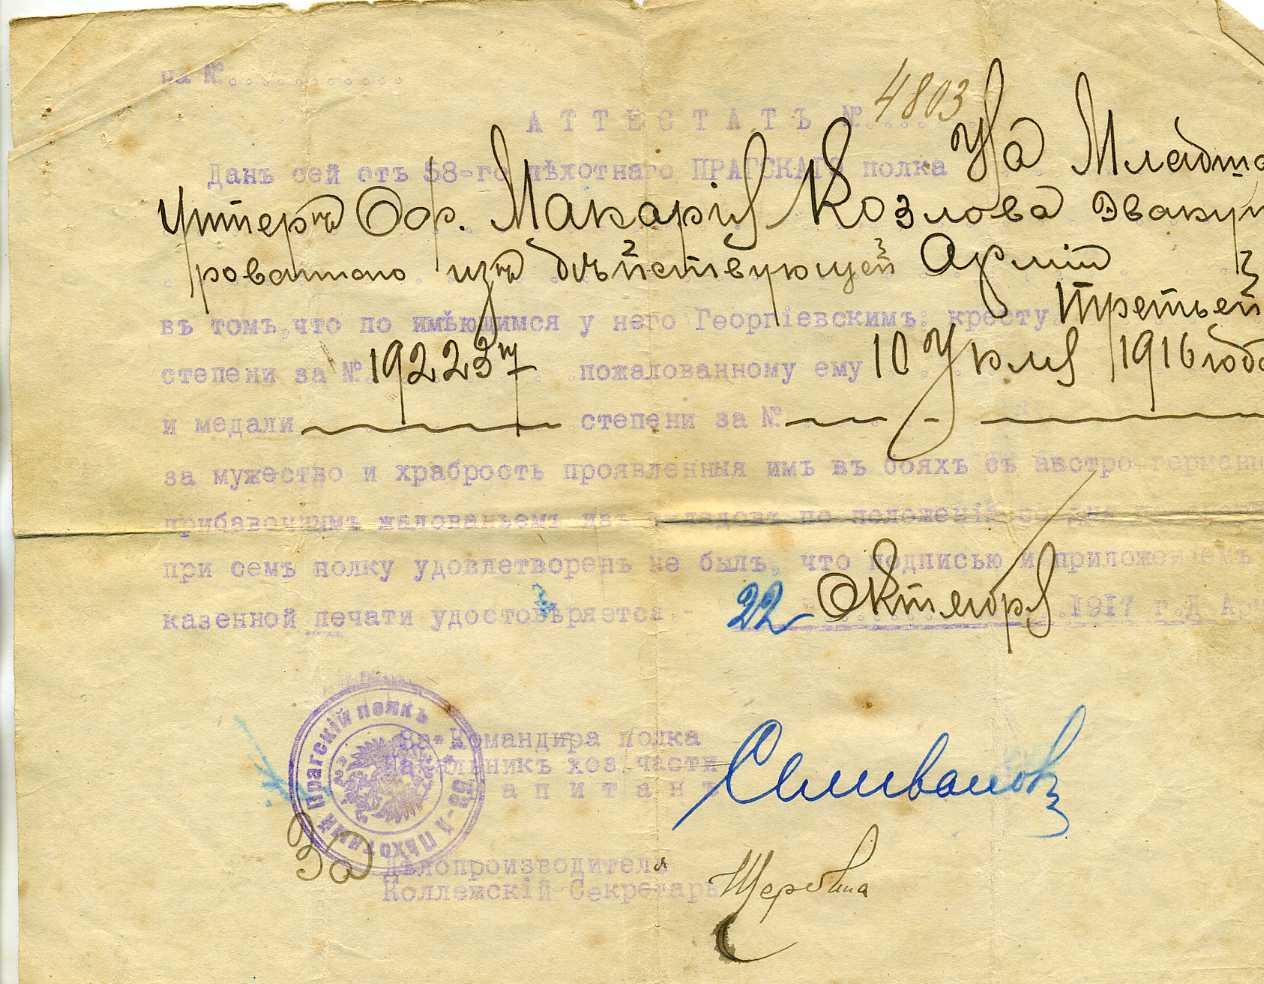 на №
АТТЕСТАТЪ № 4803
Данъ сей отъ 58-го пѣхотнаго ПРАГСКАГО полка На Младша
Унтеръ Оф. Макарія Козлова Эвакуи
рованнаго изъ дѣйствующей Арміи
въ томъ,что по имѣющимся у него Георгіевскимъ: кресту Третьей
степени за № 192237 пожалованному ему 10 1916 года
и медали степени за №
за мужество и храбрость проявленныя имъ въ бояхъ съ австро-германц
прибавочнымъ жалованьемъ изъ окладовъ по положенію со дня
при семъ полку удовлетворенъ не былъ, что подписью и приложеніемъ
казенной печати удостовѣряется.- 22 Октября 1917 г. Д Ар
58-й Пѣхотный Прагскій полкъ
За-Командира полка
Начальникъ хоз.части
Капитанъ Селивановъ
За Дѣлопроизводителя
Коллежскій Секретарь Щербина